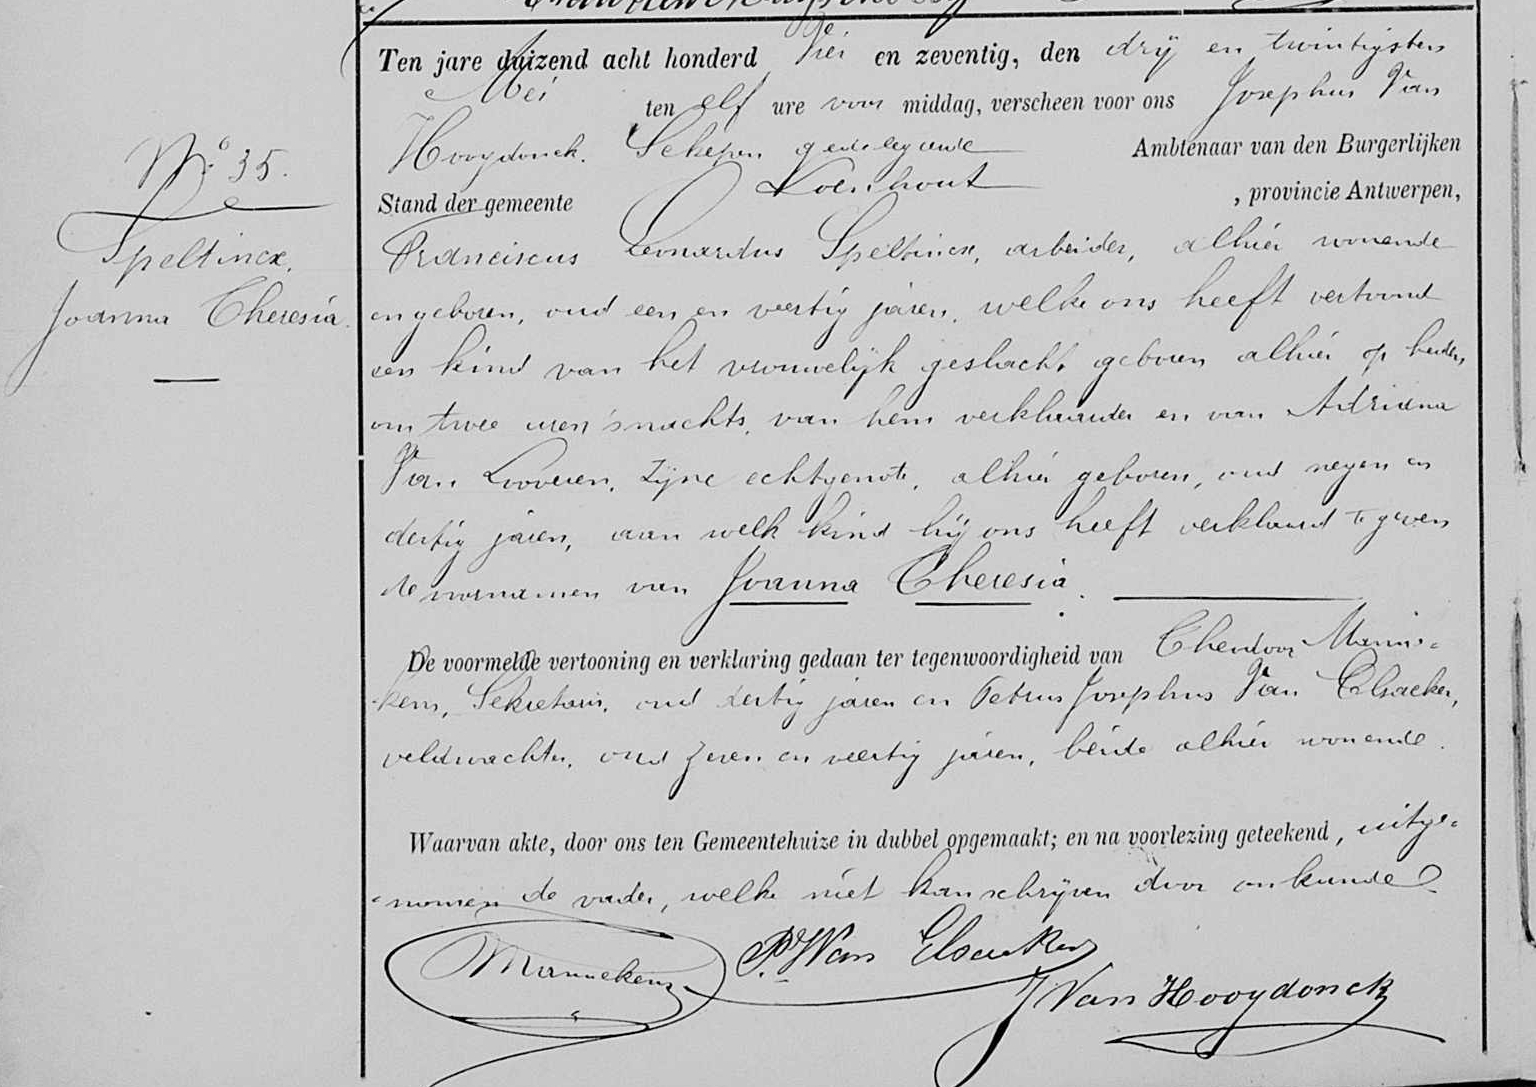 Nº 35.
Speltincx,
Joanna Theresia.
Ten jare duizend acht honderd Vier en zeventig, den drÿ en twintigsten
Mei ten elf ure voor middag, verscheen voor ons Josephus Van
Hooydonck. Schepen gedelegeerde Ambtenaar van den Burgerlijken
Stand der gemeente Loenhout , provincie Antwerpen,
Franciscus Leonardus Speltincx, arbeider, alhier wonende
en geboren, oud een en veertig jaren, welke ons heeft vertoond
een kind van het vrouwelÿk geslacht, geboren alhier op heden,
om twee uren 's nachts, van hem verklaarder en van Adriana
Van Looveren, zÿne echtgenote, alhier geboren, oud negen en
dertig jaren, aan welk kind hÿ ons heeft verklaard te geven
de voornamen van Joanna Theresia.
De voormelde vertooning en verklaring gedaan ter tegenwoordigheid van Theodoor Manne-
-kens, Sekretaris, oud dertig jaren en Petrus Josephus Van Elsacker,
veldwachter, oud zeven en veertig jaren, beide alhier wonende.
Waarvan akte, door ons ten Gemeentehuize in dubbel opgemaakt; en na voorlezing geteekend, uitge-
-nomen de vader, welke niet kan schrÿven door onkunde
Mannekens P. J. Van Elsacker
J Van Hooydonck